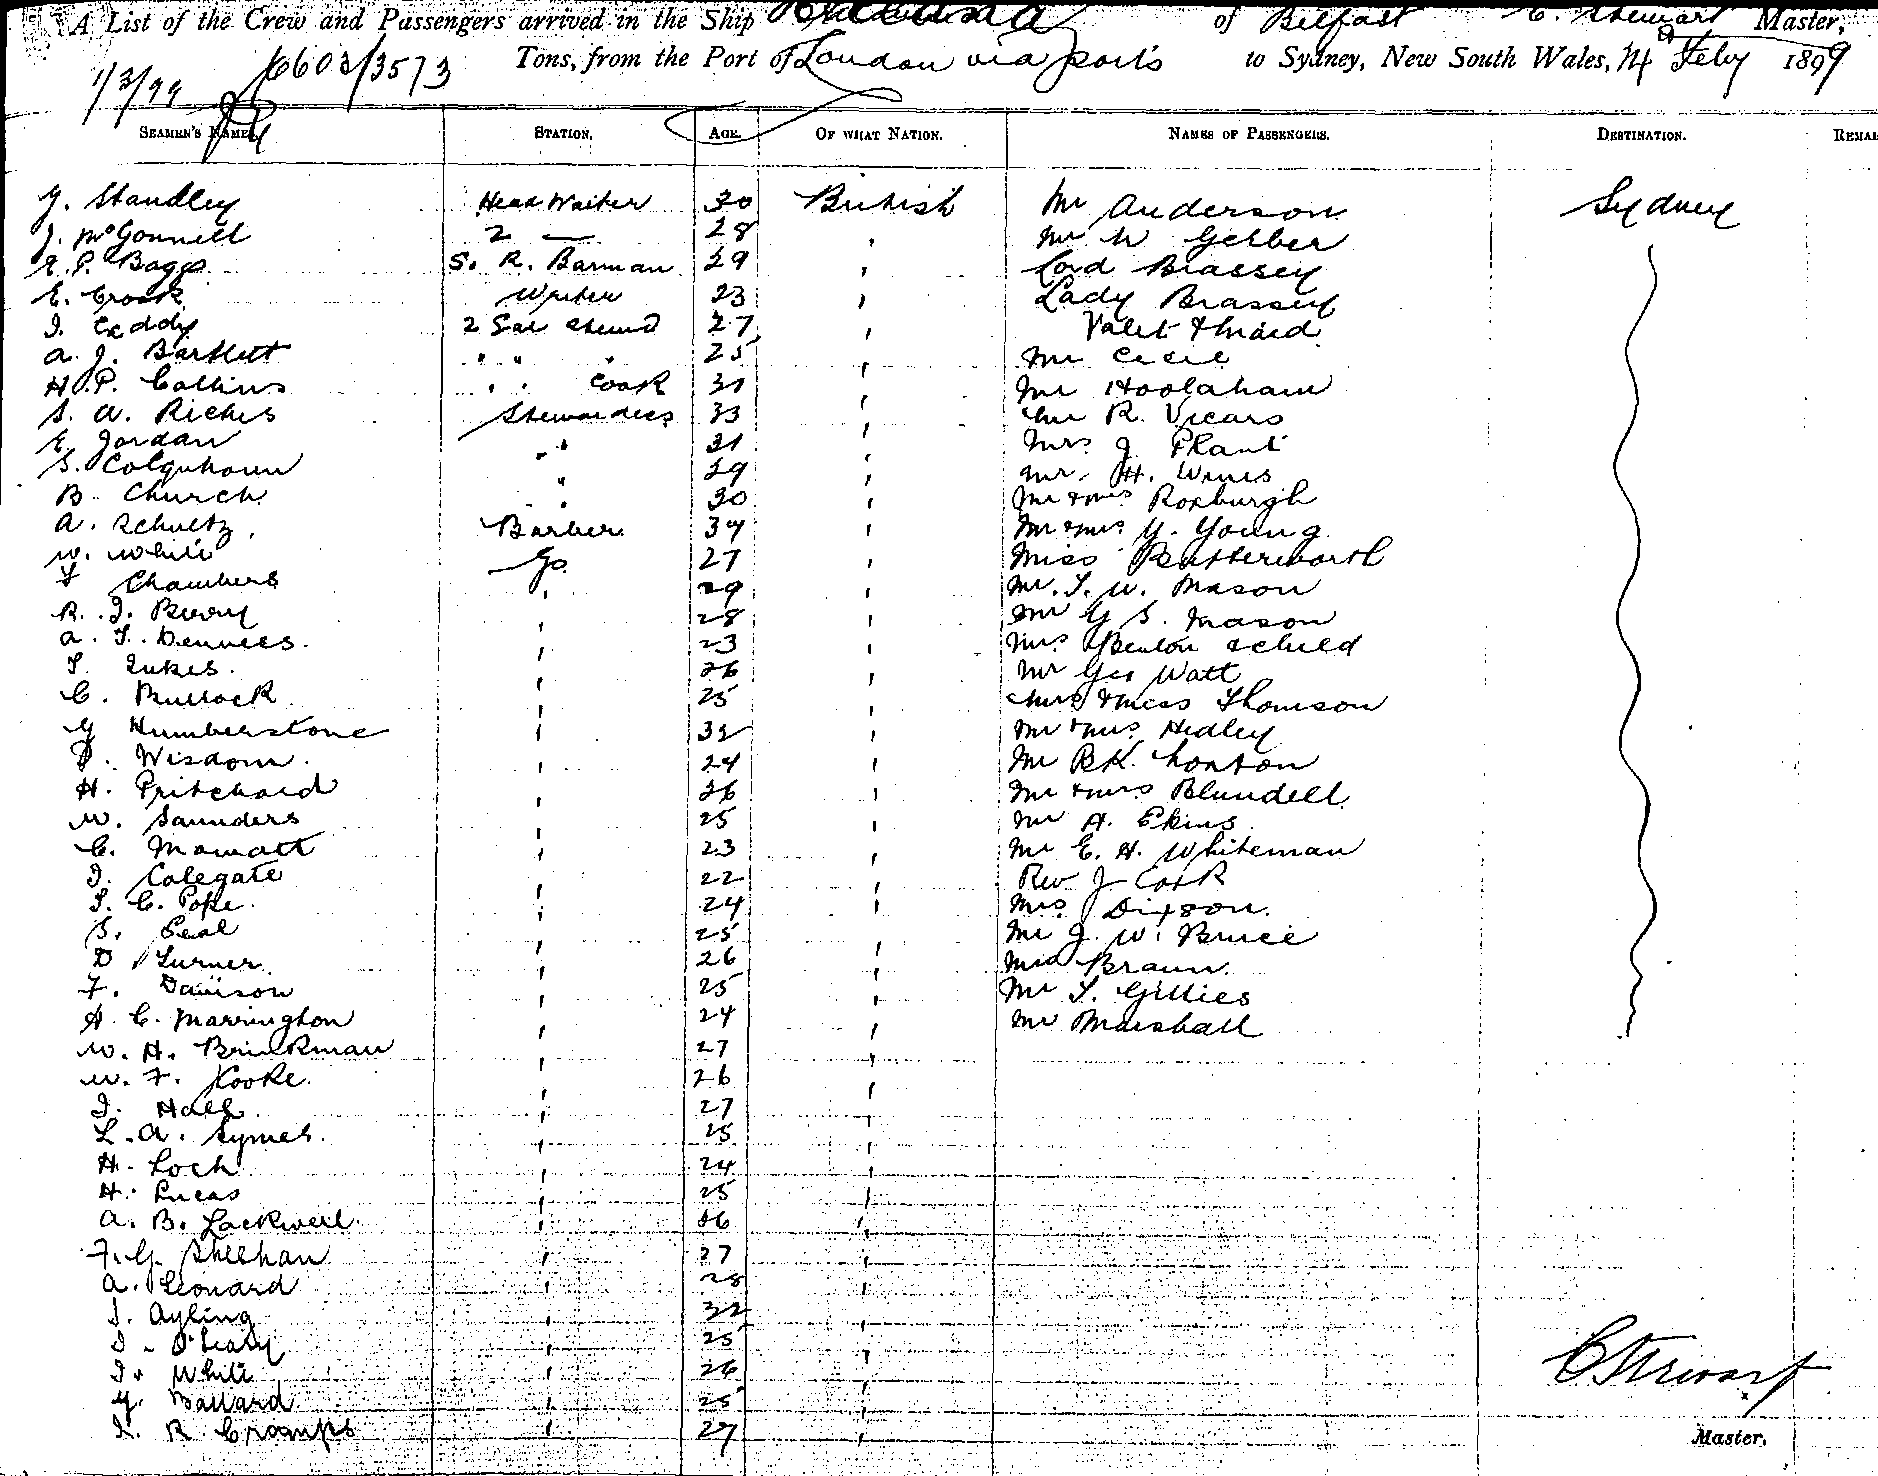 A List of the Crew and Passengers arrived in the Ship of Belfast C. Stewart Master,
1/3/99 6603/3573 Tons, from the Port of London via ports to Sydney, New South Wales, 14 Feby 1899
SEAMEN'S NAMES. STATION. AGE. OF WHAT NATION. NAMES OF PASSENGERS. DESTINATION. REMA
Standley Head Waiter 30 British Mr Anderson Sydney
J. McGonnell 2 — 28 Mr W Gerber
Baggs S. R. Barman 29 Lord Brassey
E. Crook Writer 23 Lady Brassey
Eddy 2 Sal Stewd 27 Valet & Maid
A. J. Bartlett " " " 25 Mr Cecil
H. P. Collins " " Cook 31 Mr Hoolaham
S. A. Riches Stewardess 33 Mr R. Vicars
E. Jordan " 31 Mrs J Plant
S. Colquhoun " 29 Mr. H. Wines
B. Church " 30 Mr & Mrs Roxburgh
A. Schultz Barber 34 Mr & Mrs Y. Young
W. White Gs 27 Miss Butterworth
Chambers 29 Mr. T. W. Mason
R. J. 28 Mr G S. Mason
A. T. Dennees. 23 Mrs Benton & child
Lukes. 26 Mr Geo Watt
C. Bullock 25 & Miss Thomson
G Humberstone 32 Mr & Mrs Hedley
Wisdom. 24 Mr
H. Pritchard 26 Mr & Mrs Blundell
W. Saunders 25 Mr A. Ekins
C. Mowatt 23 Mr E. H. Whiteman
Colegate 22 Rev J Cork
C. Pope. 24 Mrs Dixson.
S. Peal 25 Mr J. W. Bruce
D Turner 26 Braun.
F. Davison 25 Mr T. Gillies
A. C. Marrington 24 Mr Marshall
W. H. Brinkman 27
W. F. Cooke. 26
Hall 27
L. A. Symes. 25
H. Loch 24
H. Lucas 25
A. B. Lackweil. 26
F. G. Sheehan 27
A. Leonard 28
Ayling 32
O'Leary 25
White 26 C Stewart
G. Ballard 25
R. Cramps 27 Master.